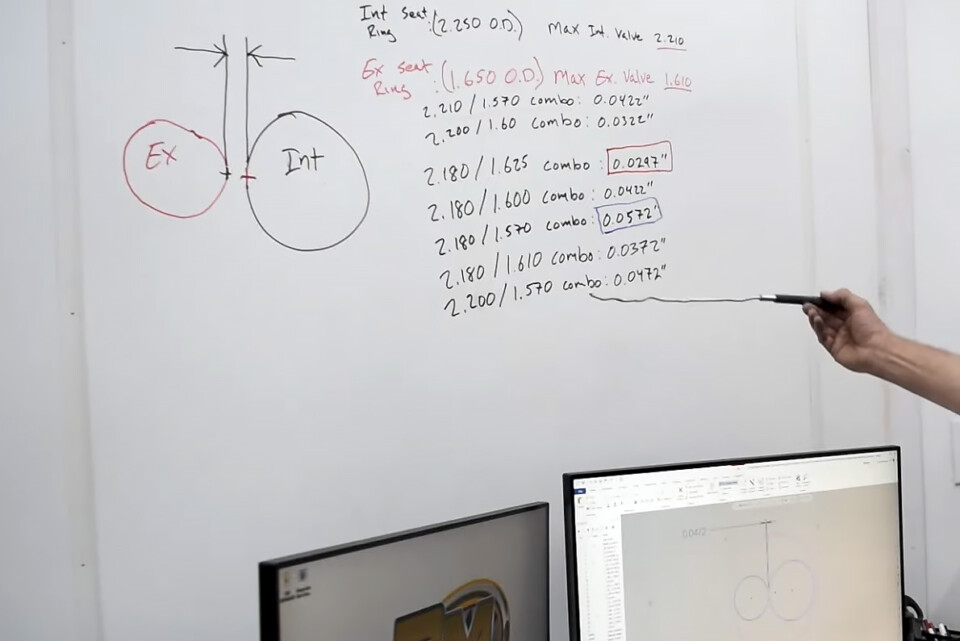 Int Seat Ring :(2.250 O.D.) Max Int. Valve 2.210
Ex Seat Ring :(1.650 O.D.) Max Ex. Valve 1.610
2.210/1.570 combo: 0.0422"
2.200/1.60 combo: 0.0322"
2.180/1.625 combo: 0.0297"
2.180/1.600 combo: 0.0422"
2.180/1.570 combo: 0.0572"
2.180/1.610 combo: 0.0372"
2.200/1.570 combo: 0.0472"
Ex
Int